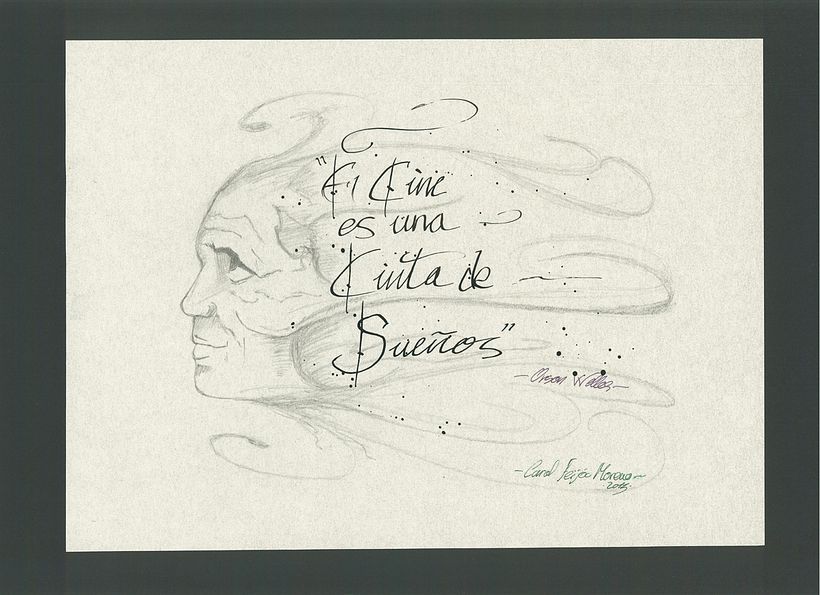 "El Cine
es una
Cinta de
Sueños"
-Orson Welles-
-Carol Feijóo Moreno-
2015